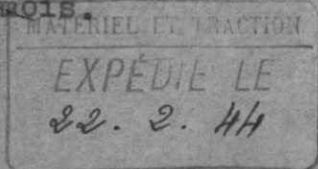 mois.
MATÉRIEL ET TRACTION
EXPÉDIÉ LE
22. 2. 44